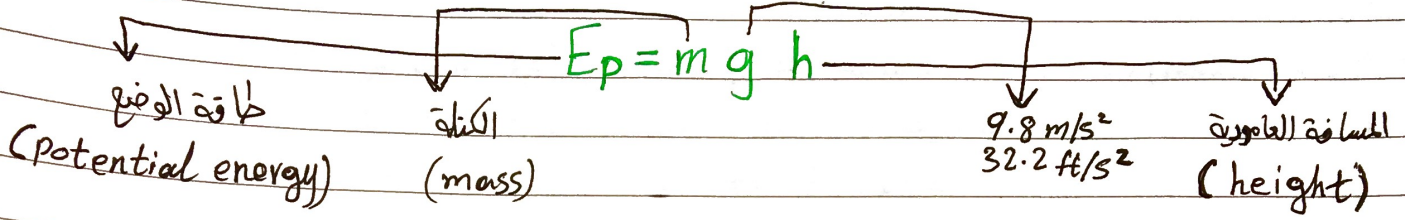 Ep = m g h
طاقة الوضع
(potential energy)
الكتلة
(mass)
9.8 m/s²
32.2 ft/s²
المسافة العامودية
(height)